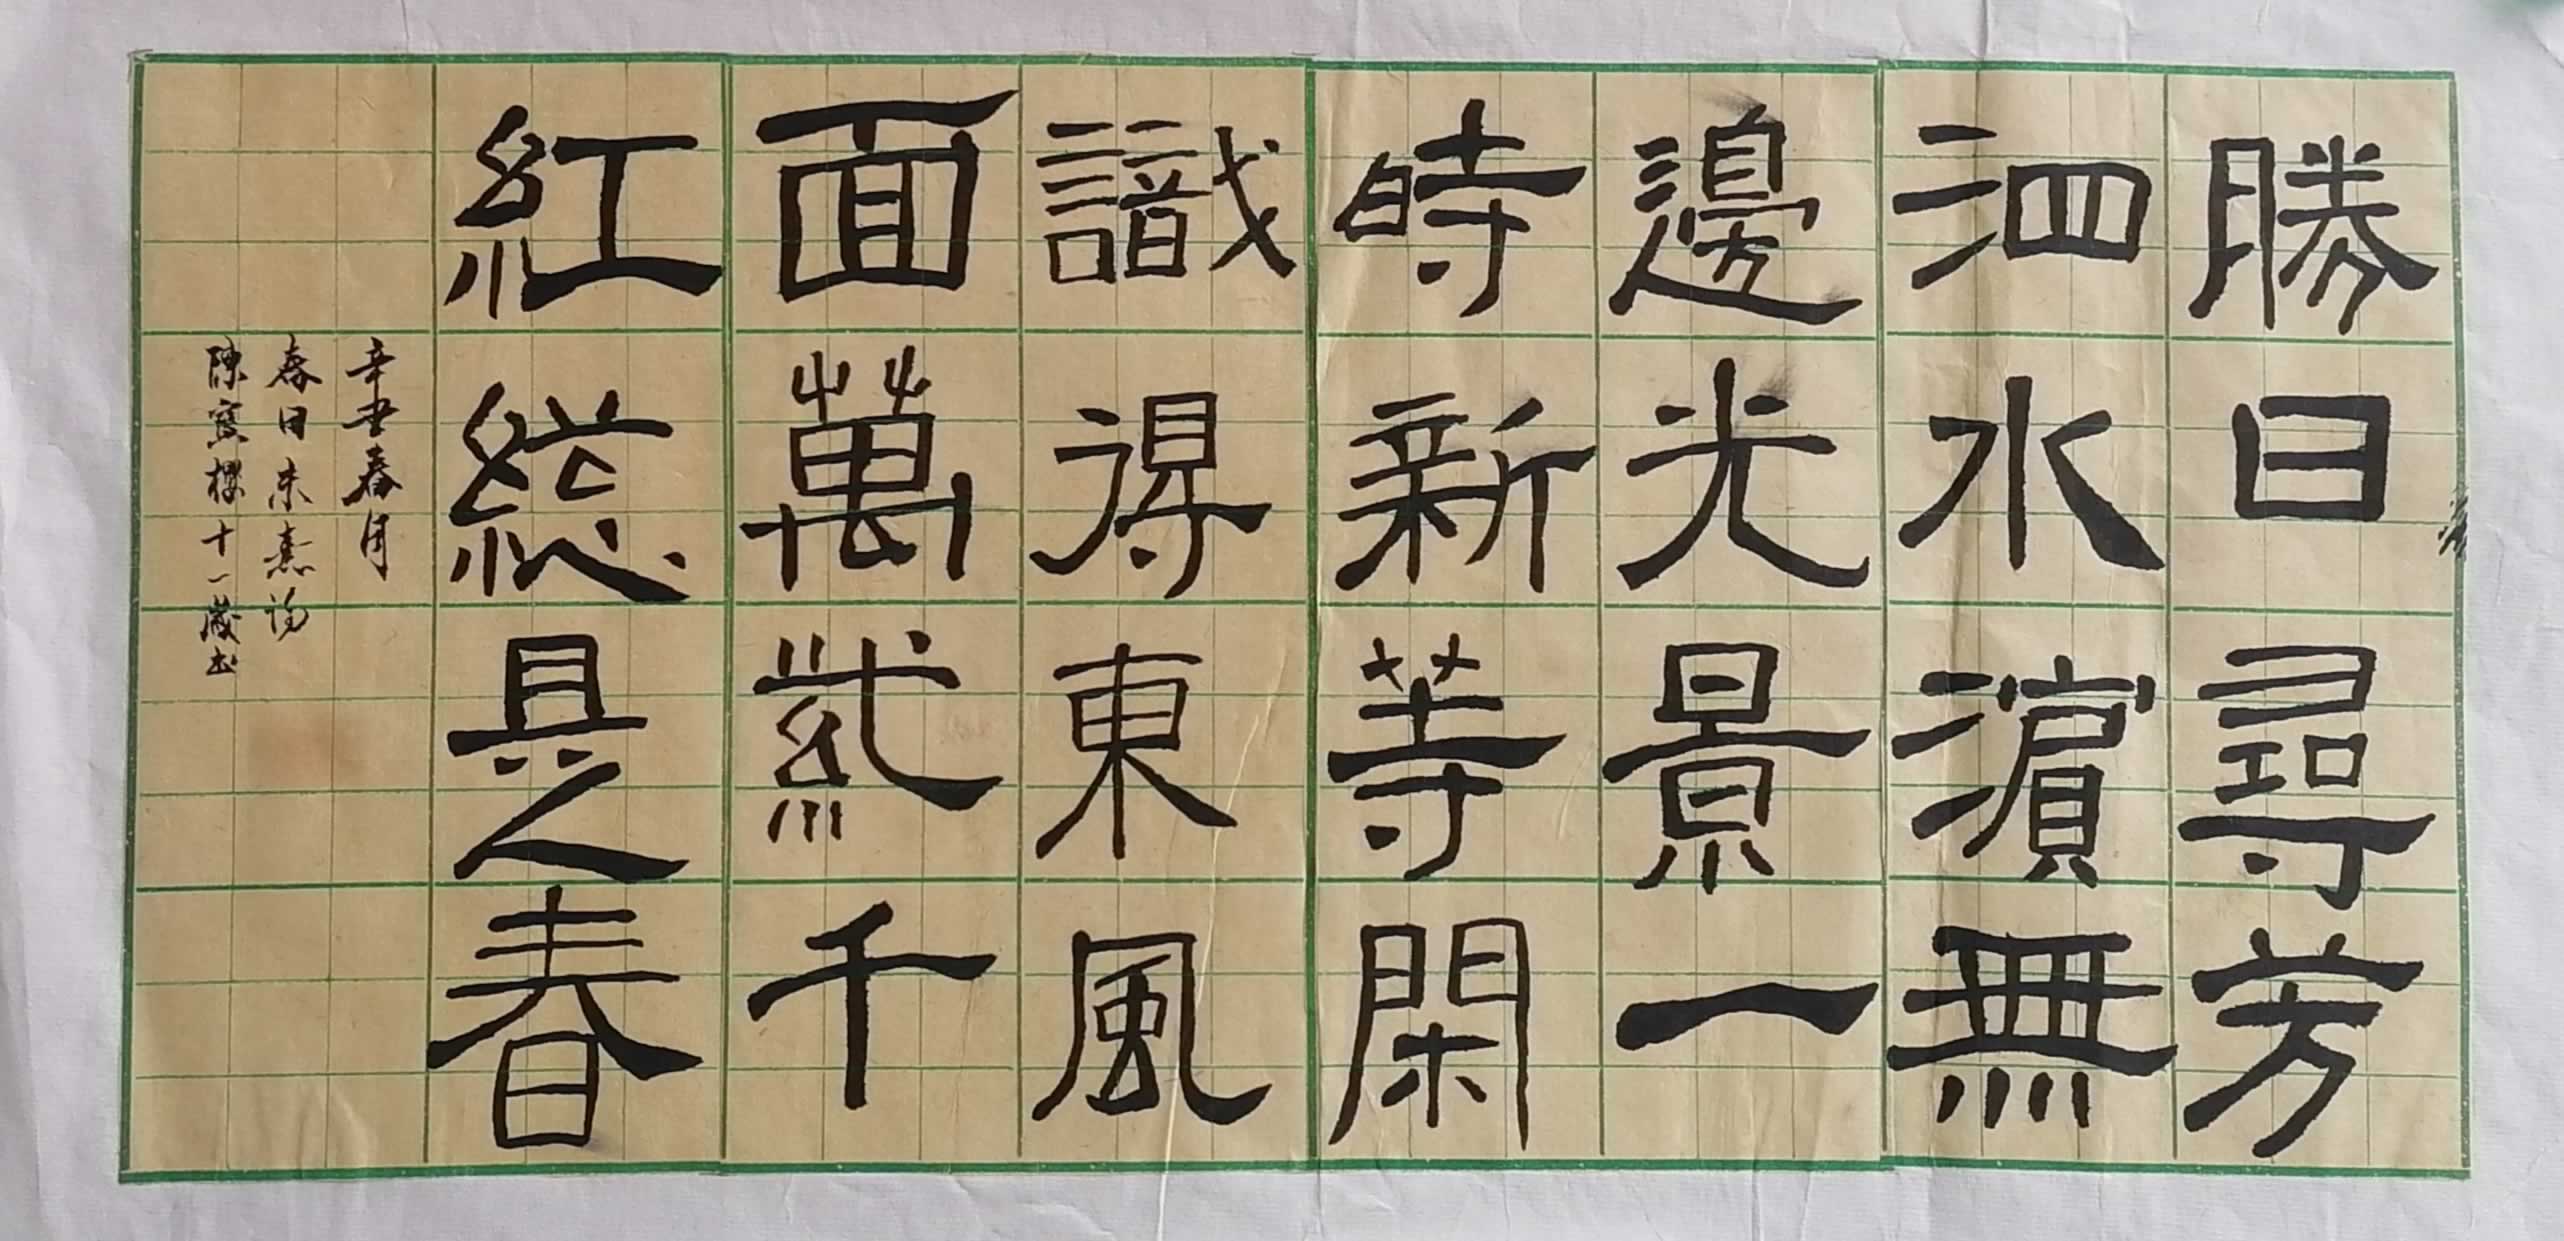 勝日尋芳
泗水濵無
邊光景一
時新等閑
識得東風
面萬紫千
紅緫是春
辛丑春月
春日朱熹詩
陳窓櫻十一歲书